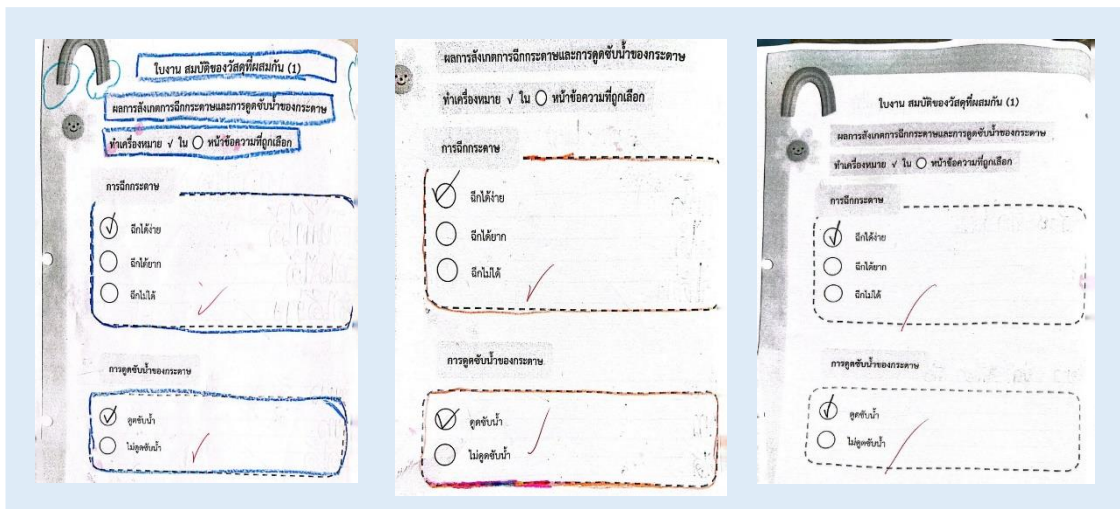 ใบงาน สมบัติของวัสดุที่ผสมกัน (1)
ผลการสังเกตการฉีกกระดาษและการดูดซับน้ำของกระดาษ
ทำเครื่องหมาย √ ใน ◯ หน้าข้อความที่ถูกเลือก
การฉีกกระดาษ
ฉีกได้ง่าย
ฉีกได้ยาก
ฉีกไม่ได้
การดูดซับน้ำของกระดาษ
ดูดซับน้ำ
ไม่ดูดซับน้ำ
ผลการสังเกตการฉีกกระดาษและการดูดซับน้ำของกระดาษ
ทำเครื่องหมาย √ ใน ◯ หน้าข้อความที่ถูกเลือก
การฉีกกระดาษ
ฉีกได้ง่าย
ฉีกได้ยาก
ฉีกไม่ได้
การดูดซับน้ำของกระดาษ
ดูดซับน้ำ
ไม่ดูดซับน้ำ
ใบงาน สมบัติของวัสดุที่ผสมกัน (1)
ผลการสังเกตการฉีกกระดาษและการดูดซับน้ำของกระดาษ
ทำเครื่องหมาย √ ใน ◯ หน้าข้อความที่ถูกเลือก
การฉีกกระดาษ
ฉีกได้ง่าย
ฉีกได้ยาก
ฉีกไม่ได้
การดูดซับน้ำของกระดาษ
ดูดซับน้ำ
ไม่ดูดซับน้ำ